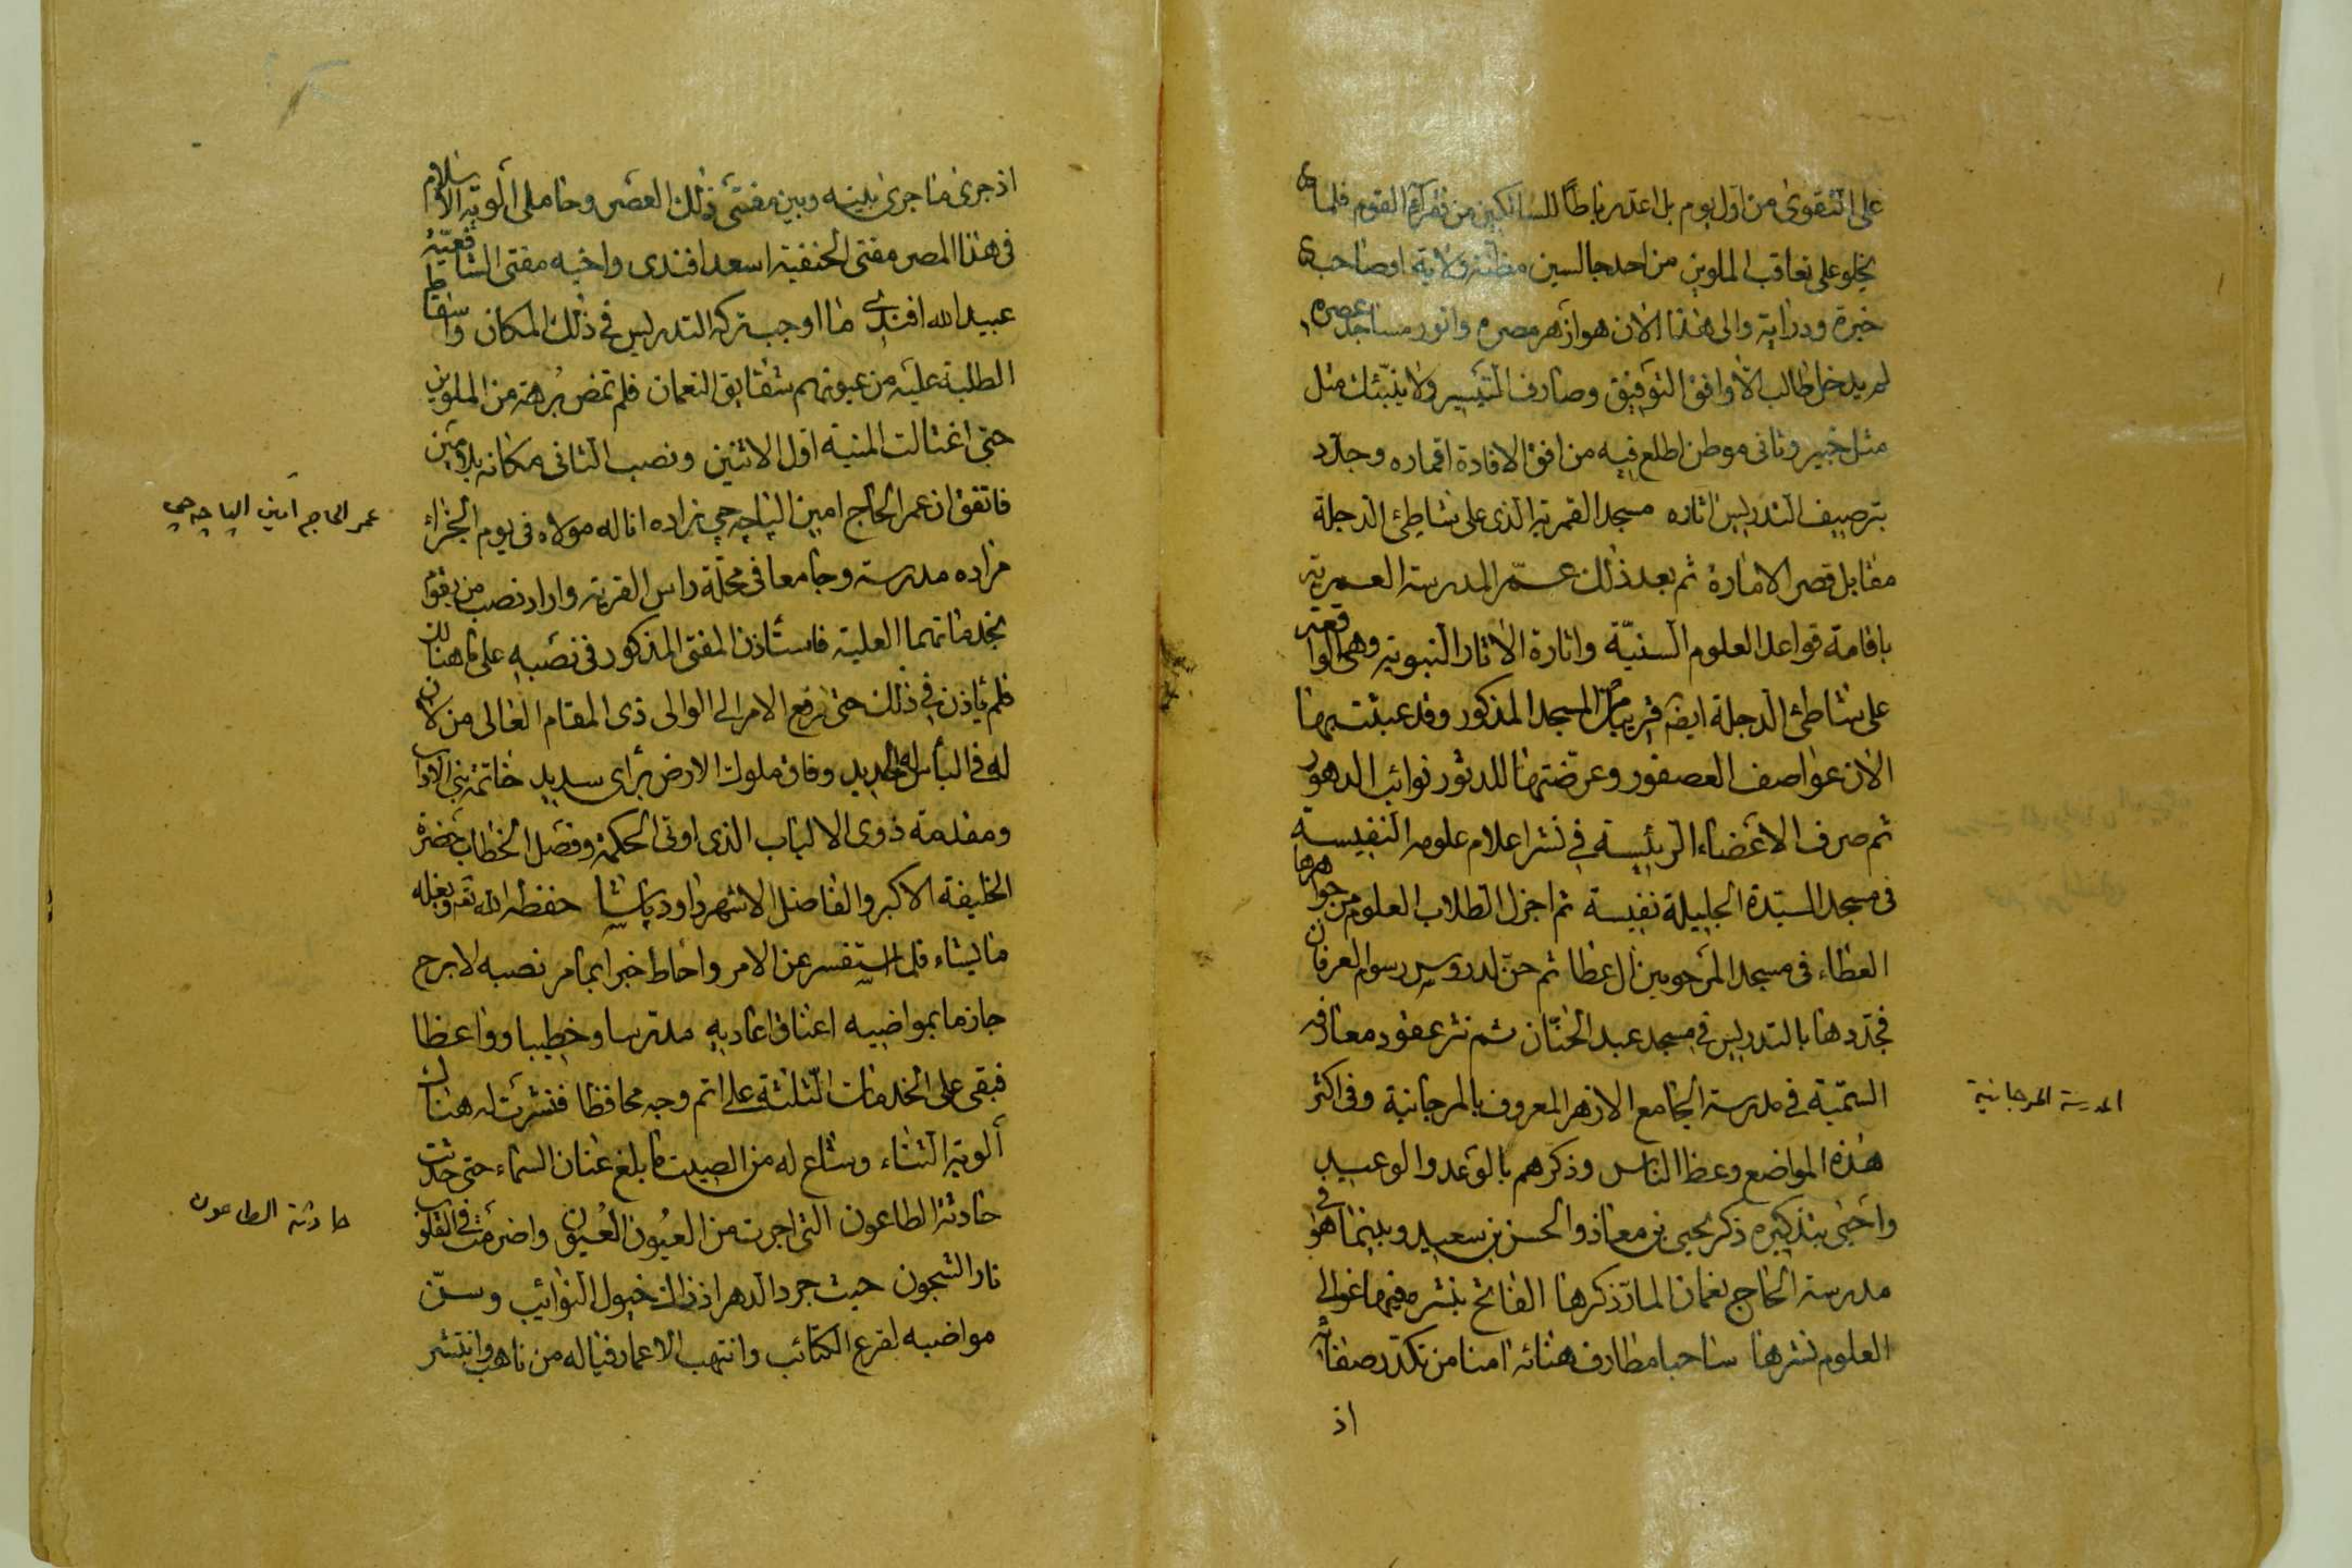 على التقوى من اول يوم بل اعد رباطًا للسالكين من فقرآء القوم فلما
يخلو على تعاقب الملوين من احد جالسين مظنة ولاية او صاحب
خبرة ودراية والى هذا الان هو ازهر مصره وانور مساجد عصره
لم يدخل طالب الا وافق التوفيق وصادف التيسير ولا ينبئك مثل
مثل خبير وثانى موطن اطلع فيه من افق الافادة اقماره وجدد
بترصيف التدريس اثاره مسجد القمرية الذى على شاطئ الدجلة
مقابل قصر الامارة ثم بعد ذلك عمّر المدرسة العمرية
باقامة قواعد العلوم السنيّة واثارة الاثار النبوية وهى الواقعة
على شاطئ الدجلة ايضا قريبا من المسجد المذكور وقد عبثت بها
الان عواصف العصفور وعرّضتها للدثور نوائب الدهور
ثم صرف الاعضاء الرئيسة فى نشر اعلام علومه النفيسة
فى مسجد السيّدة الجليلة نفيسة ثم اجزل لطلاب العلوم من جواهرها
العطاء فى مسجد المرحومين ال عطا ثم حنّ لدروس رسوم العرفان
فجددها بالتدريس فى مسجد عبد الحنّان ثم نثر عقود معارفه
السميّة فى مدرسة الجامع الازهر المعروف بالمرجانية وفى اكثر
المدرسة المرجانية
هذه المواضع وعظ الناس وذكرهم بالوعد والوعيد
واحيى بتذكيره ذكر يحيى بن معاذ والحسن بن سعيد وبينما هو فى
مدرسة الحاج نعمان المارّ ذكرها الفائح بنشره فيها غوالى
العلوم نشرها ساحبا مطارف هنائه امنا من تكدّر صفائه
اذ
اذ جرى ما جرى بينه وبين مفتى ذلك العصر وحاملى الوية الاسلام
فى هذا المصر مفتى الحنفية اسعد افندى واخيه مفتى الشافعيّة
عبيد الله افندى ما اوجب تركه التدريس فى ذلك المكان واسقاط
الطلبة عليه من عيونهم شقايق النعمان فلم تمض برهة من الملوين
حتى اغتالت المنية اول الاثنين ونصب الثانى مكانه بلا مين
فاتفق ان عمر الحاج امين الپاچه چى زاده اناله مولاه فى يوم الجزاء
عمر الحاج امين الپاچه چى
مراده مدرسة وجامعا فى محلّة راس القرية واراد نصب من يقوم
بخدماتهما العلية فاستأذن المفتى المذكور فى نصبه على ما هنالك
فلم ياذن فى ذلك حتى رفع الامر الى الوالى ذى المقام العالى من لان
له فى البأس الحديد وفاق ملوك الارض برأى سديد خاتمة بنى الاداب
ومقدمة ذوى الالباب الذى اوتى الحكمة وفصل الخطاب حضرة
الخليفة الاكبر والفاضل الاشهر داود پاشا حفظه الله وبغله
ما يشاء فلما استفسر عن الامر واحاط خبرا بما مر نصبه لا برح
جازما بمواضيه اعناق اعاديه مدرسا وخطيبا وواعظا
فبقى على الخدمات الثلثة على اتم وجه محافظا فنشرت له هنالك
ألوية الثناء وشاع له من الصيت ما بلغ عنان السماء حتى حدثت
حادثة الطاعون التى اجرت من العيون العُيون واضرمت فى القلوب
حادثة الطاعون
نار الشجون حيث جرد الدهر اذ ذاك خيول النوائب وسنّ
مواضيه لقرع الكتائب وانتهب الاعمار فياله من ناهب وانتشر